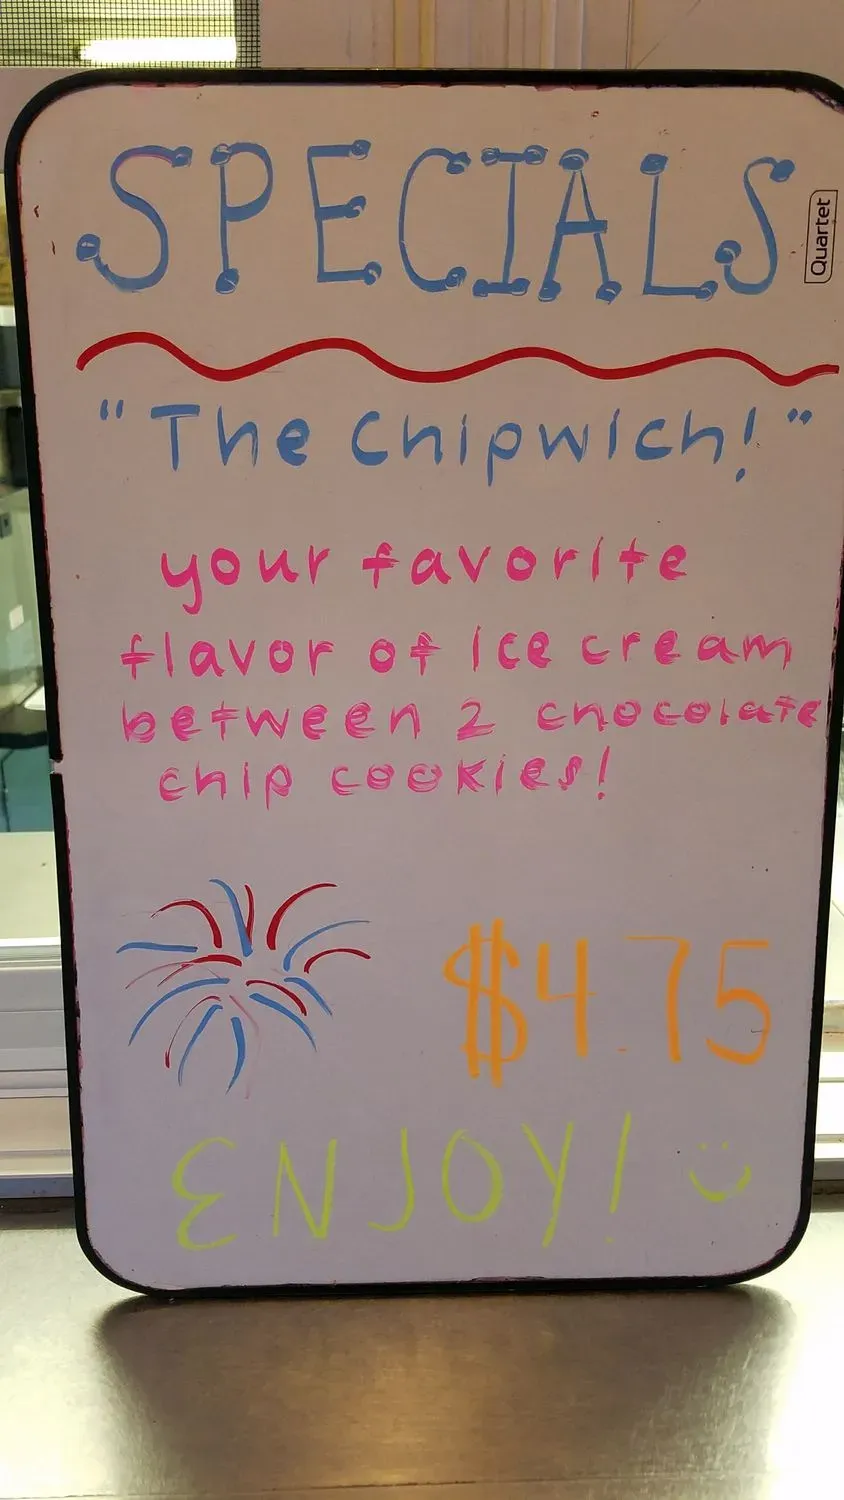 SPECIALS
Quartet
"The Chipwich!"
your favorite
flavor of ice cream
between 2 chocolate
chip cookies!
$4.75
ENJOY!